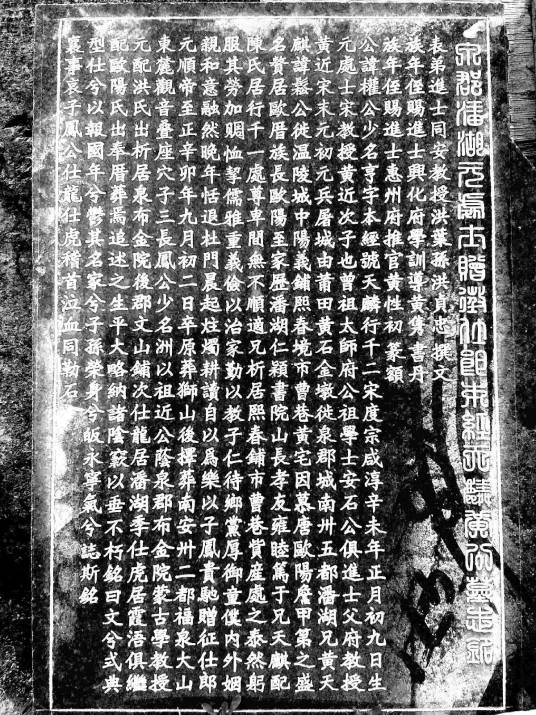 泉郡潘湖元處士贈徵仕郎本經天麟黃公墓志銘
表弟進士同安教授洪葉孫洪貞忠撰文
族年侄賜進士興化府學訓導黃雋書丹
族年侄賜進士惠州府推官黃性初篆額
公諱權公少名亨字本經號天麟行千二宋度宗咸淳辛未年正月初九日生
元處士宋教授黃近次子也曾祖太師府公祖學士安石公俱進士父府教授
黃近宋末元初元兵屠城由莆田黃石金墩徙泉郡城南卅五都潘湖兄黃天
麒諱鬆公徙溫陵城中陽義鋪熙春境市曹巷黃宅因慕唐歐陽詹甲第之盛
名賢居歐厝族長歐陽至家歷潘湖仁穎書院山長孝友雍睦篤于兄天麒配
陳氏居行千一處尊卑間無不順適兄析居熙春鋪市曹巷貲産處之泰然躬
服其勞加賙恤挈儒雅重義儉以治家勤以教子仁待鄉黨厚御童僕內外姻
親和意融然晚年恬退杜門晨起炷燭耕讀自以爲樂以子鳳貴馳贈征仕郎
元順帝至正辛卯年九月初二日卒原葬獅山後擇葬南安卅二都福泉大山
東麓觀音疊座穴子三長鳳公少名洲以祖近公蔭泉郡布金院蒙古學教授
元配洪氏出析居泉布金院後郡文山鋪次仕龍居潘湖季仕虎居霞浯俱繼
配歐陽氏出奉厝葬蒿追述之生平大略納諸陰竅以垂不朽銘曰文兮式典
型仕兮以報國年兮鬱其名家兮子孫榮身兮皈永寧氣兮誌斯銘
襄事哀子鳳公仕龍仕虎稽首泣血同勒石